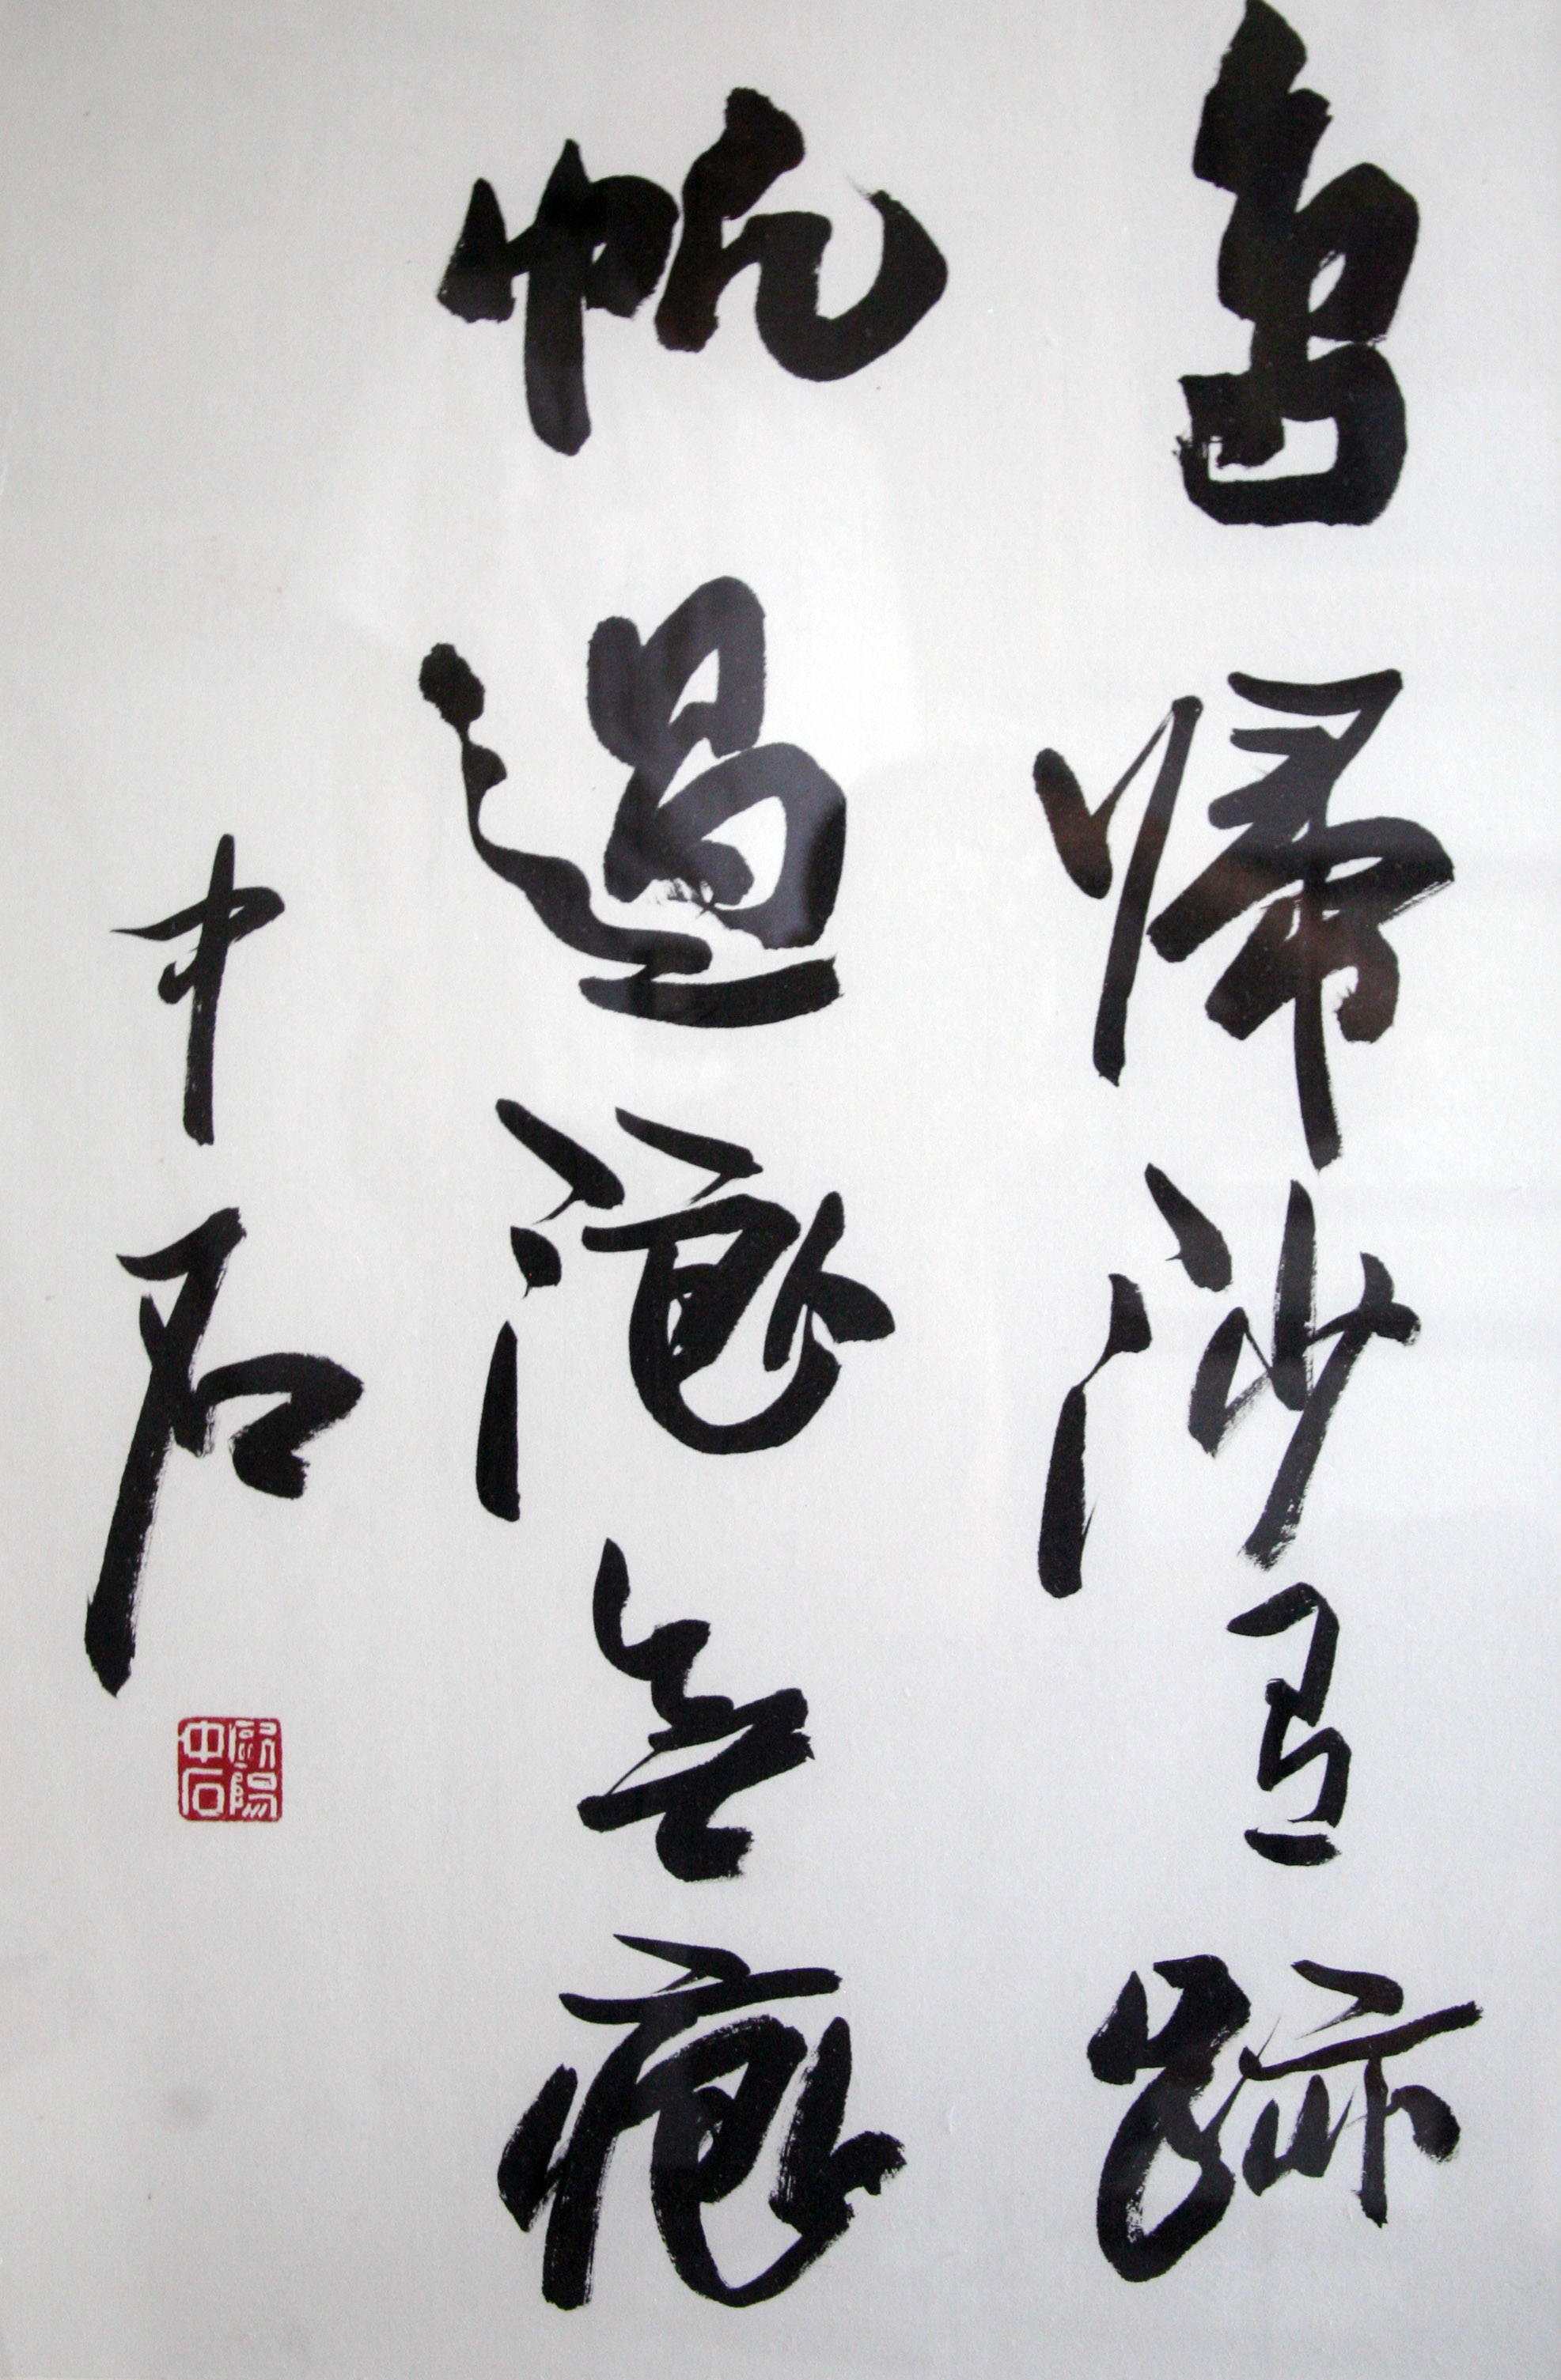 鳥歸沙有跡
帆過浪無痕
中石
歐陽中石